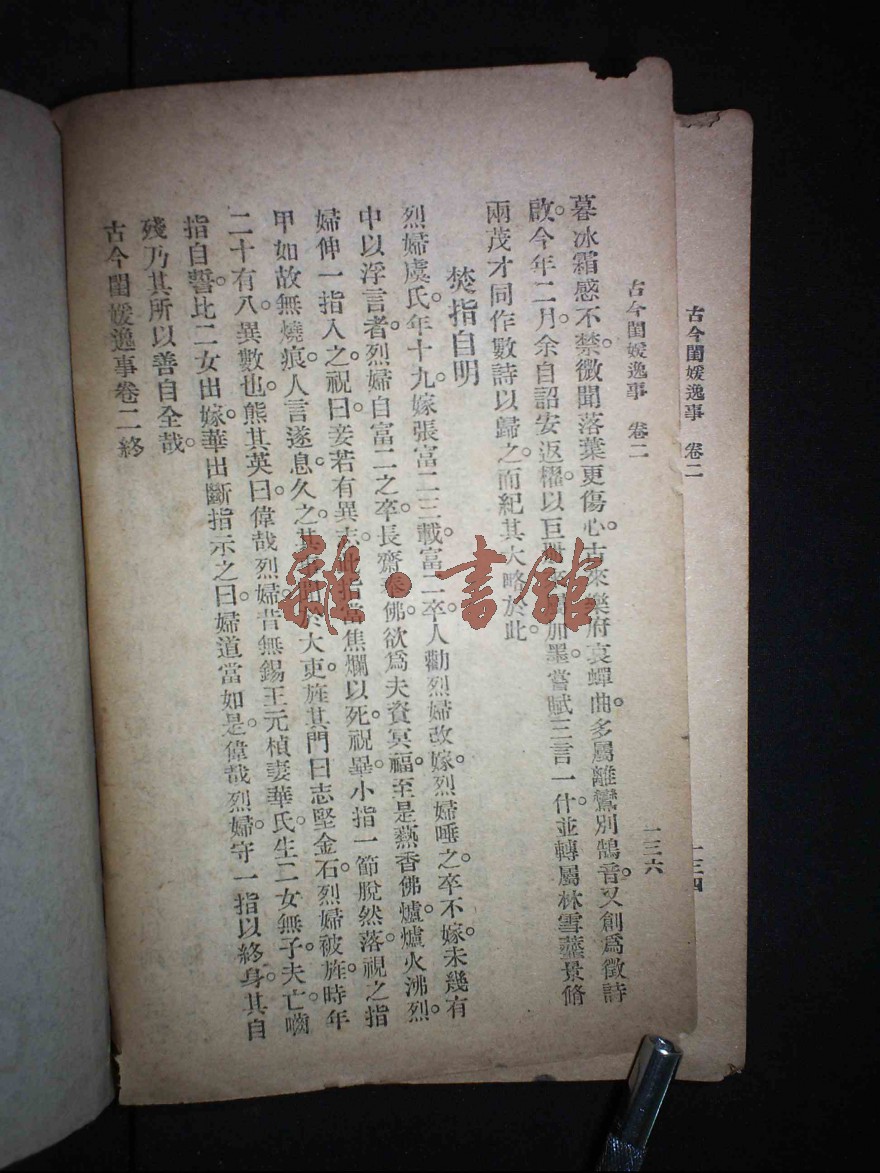 古今閨媛逸事 卷二
一三四
古今閨媛逸事 卷二
一三六
暮冰霜感不禁微聞落葉更傷心。古來樂府哀蟬曲。多屬離鸞別鵠音。又創爲徵詩
啟。今年二月。余自詔安返櫂。以巨冊 加墨嘗賦三言一什。並轉屬林雪藼景脩
兩茂才同作數詩以歸之。而紀其大略於此。
焚指自明
烈婦虞氏。年十九。嫁張富二三載。富二卒。人勸烈婦改嫁。烈婦唾之。卒不嫁。未幾有
中以浮言者。烈婦自富二之卒。長齋奉佛。欲爲夫資冥福。至是爇香佛爐。爐火沸烈。
婦伸一指入之。祝曰。妾若有異志。此指當焦爛以死。祝畢。小指一節脫然落。視之。指
甲如故。無燒痕。人言遂息。久之。其 於大吏。旌其門曰志堅金石。烈婦被旌。時年
二十有八。異數也。熊其英曰。偉哉烈婦。昔無錫王元楨妻華氏。生二女。無子。夫亡。嚙
指自誓。比二女出嫁。華出斷指示之。曰婦道當如是。偉哉烈婦。守一指以終身。其自
殘乃其所以善自全哉。
古今閨媛逸事卷二終
雜·書館